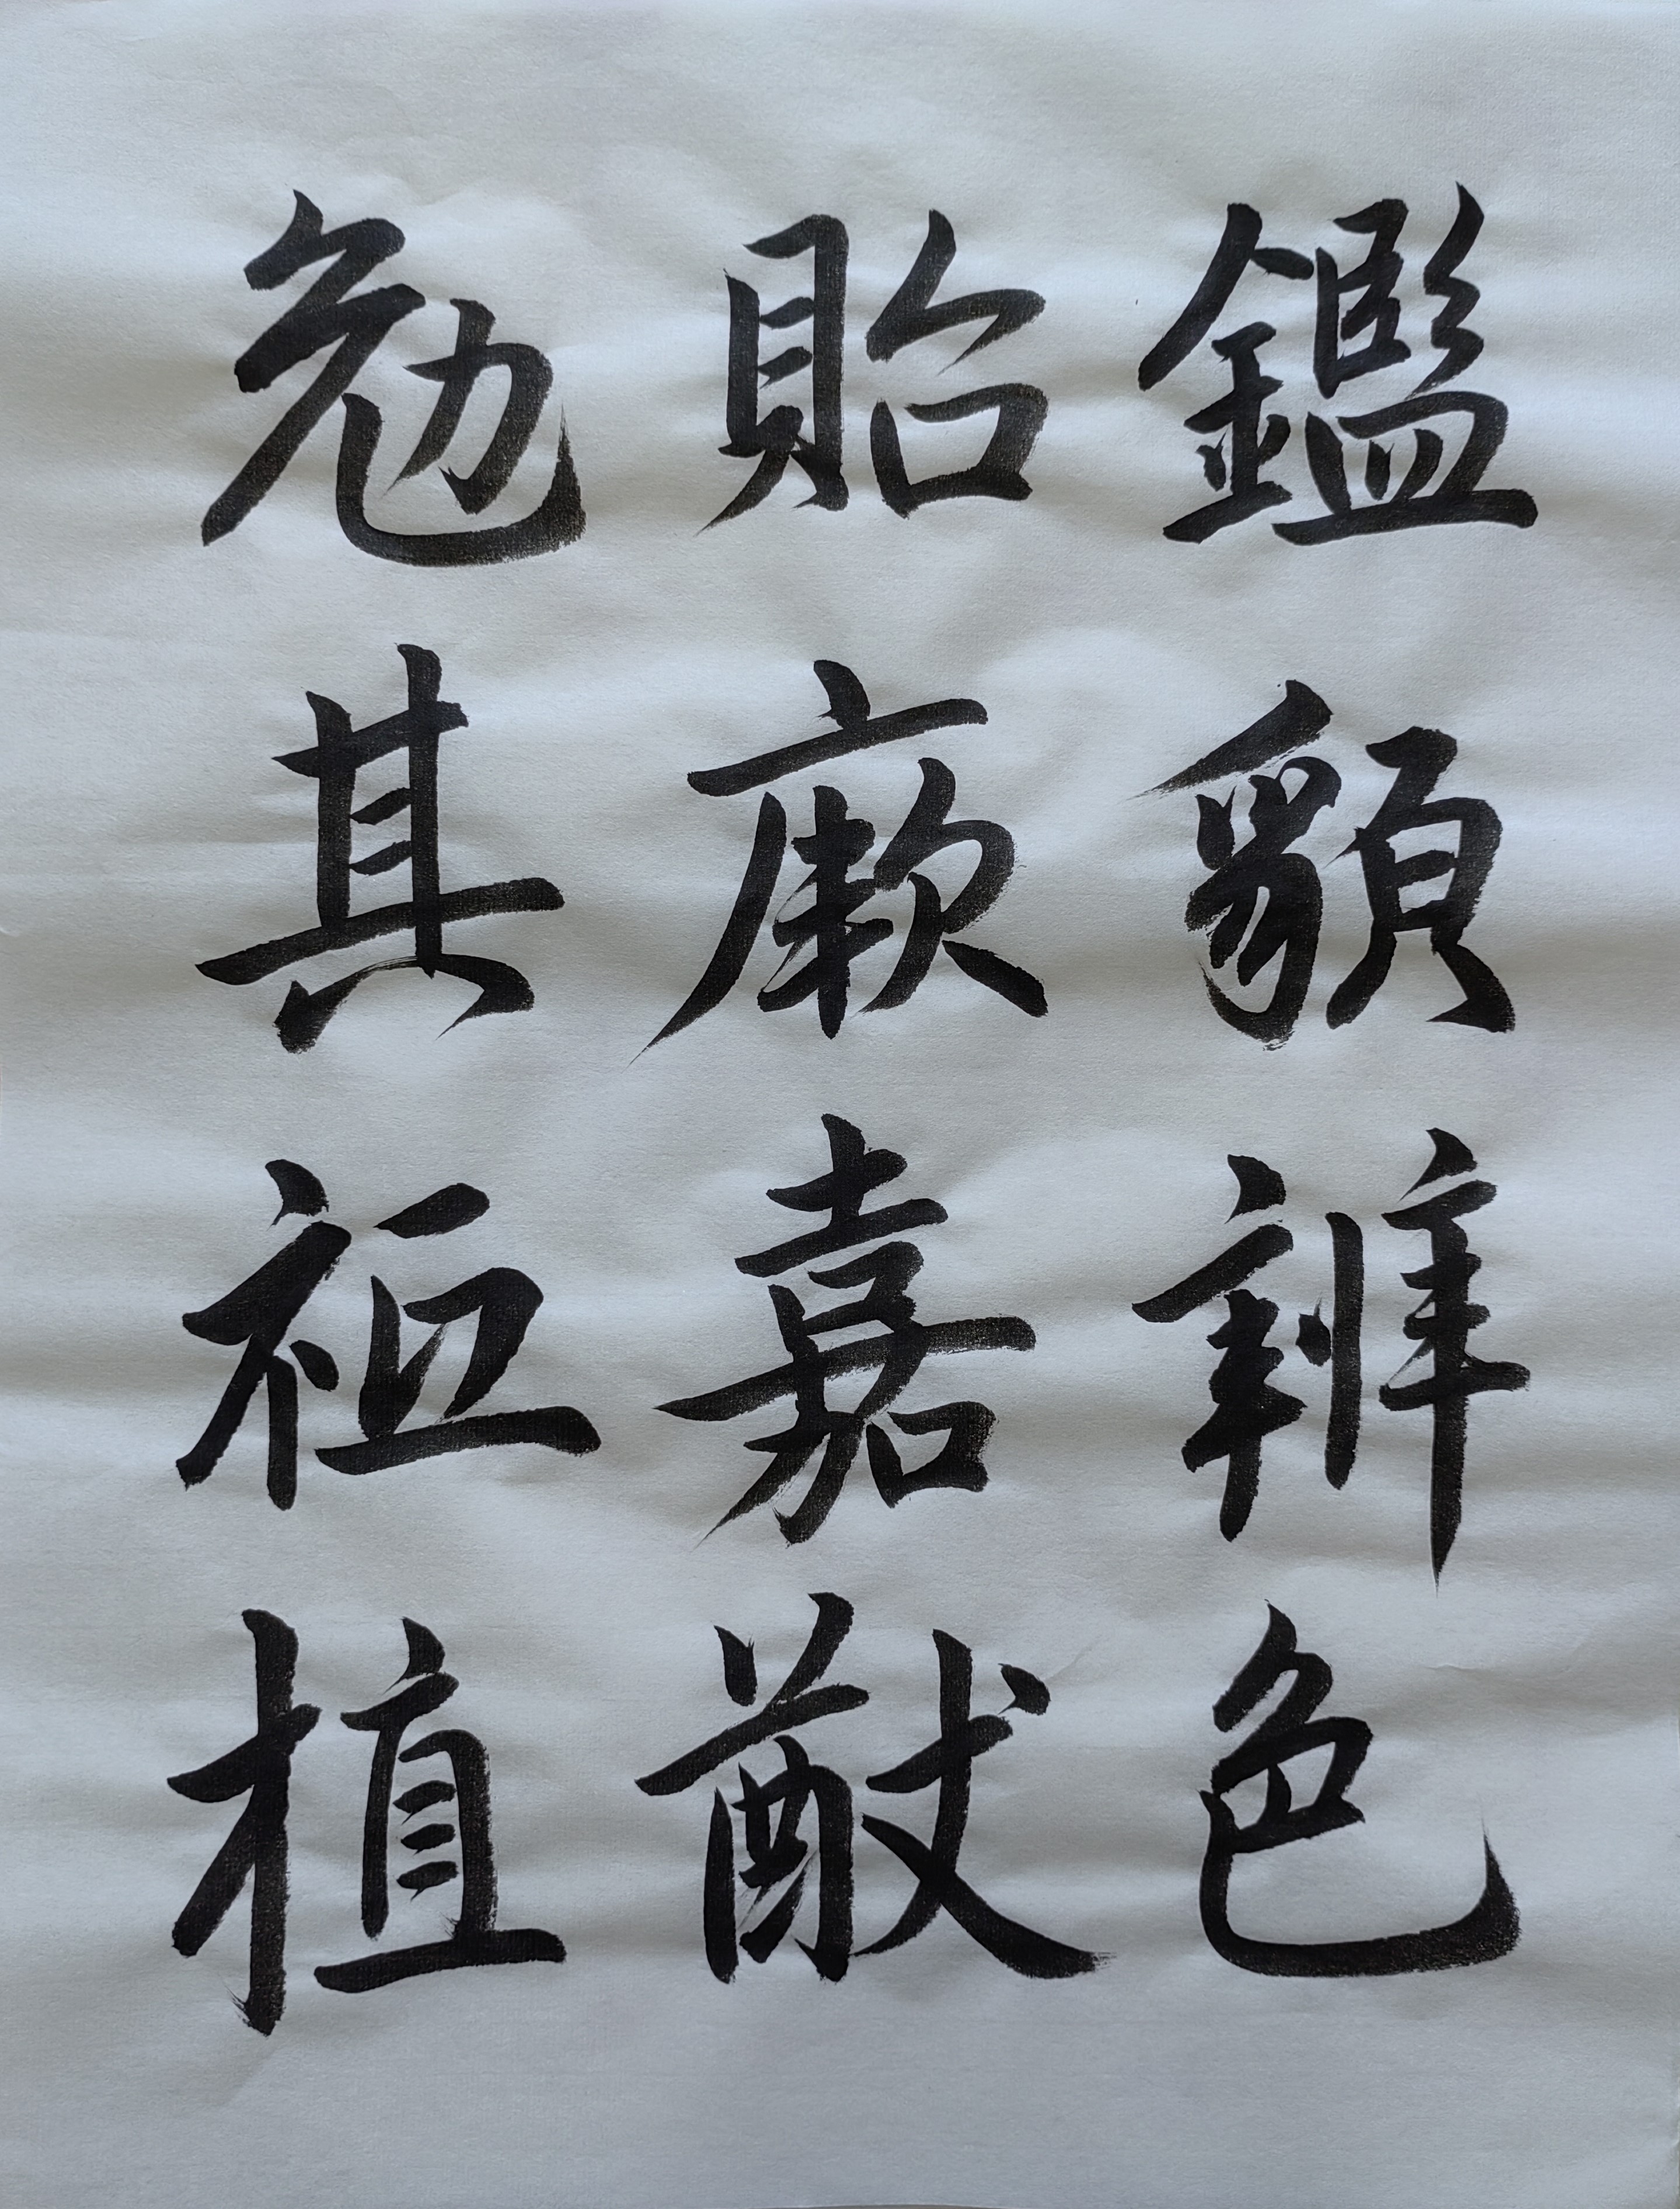 鑑貌辨色
貽厥嘉猷
勉其祗植